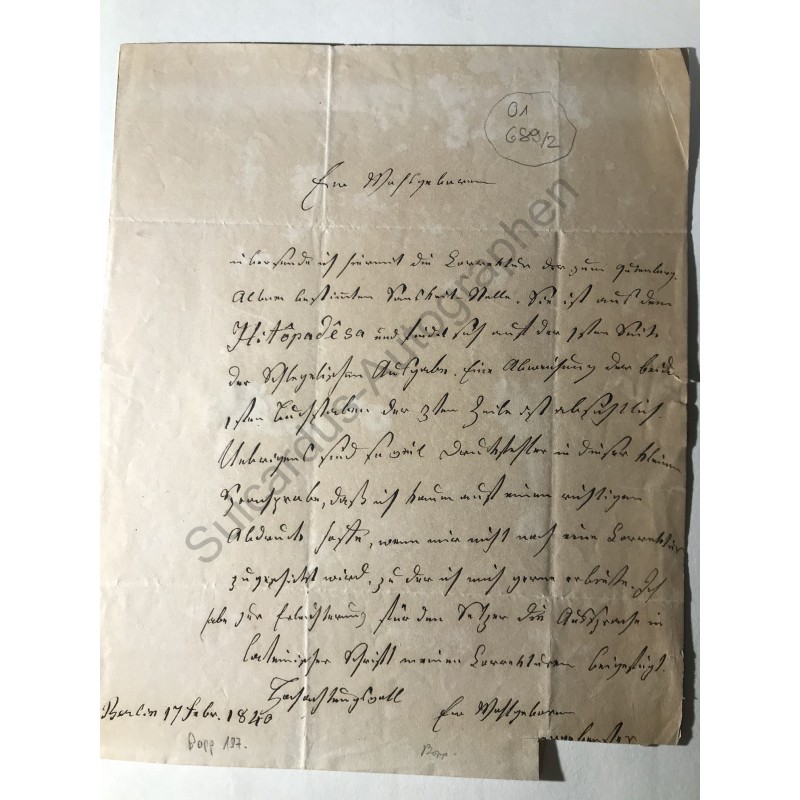 01
689/2
Ew Wohlgeboren
übersende ich hiermit die Correktur der zum Gutenberg-
Album bestimmten Sanskrit-Stelle. Sie ist aus dem
Hitôpadêsa und findet sich auf der 1sten Seite
der Schlegelschen Ausgabe. Eine Abweichung der beiden
1sten Buchstaben der 2ten Zeile ist absichtlich.
Uebrigens sind so viel Druckfehler in dieser kleinen
Sprachprobe, daß ich kaum auf einen richtigen
Abdruck hoffe, wenn mir nicht noch eine Correktur
zugeschickt wird, zu der ich mich gerne erbiete. Ich
habe zur Erleichterung für den Setzer die Aussprache in
lateinischer Schrift meinen Correkturen beigefügt.
Hochachtungsvoll
Berlin 17 Febr. 1840
Ew Wohlgeboren
ergebenster
Bopp 197.
Bopp.
Sulcardus-Autographen